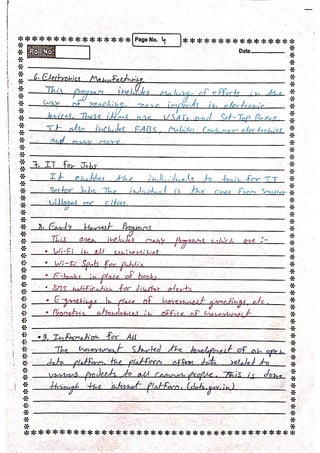 Page No. 4
Roll No.
Date
6. Electronics Manufacturing
This program includes making of efforts in the
way of reaching zero imports in electronic
devices. These items are VSATs and Set-Top Boxes
It also includes FABS, Mobiles, Consumer electronics
and many more.
7. IT for Jobs
It enables the individuals to train for IT
Sector Jobs The individual is the ones from Smaller
villages or cities.
8. Early Harvest Programs
This area includes many programs which are :-
• Wi-Fi in all universities
• Wi-Fi Spots for public
• E-books in place of books
• SMS notification for disaster alerts
• E-greetings in place of Government greetings, etc.
• Biometric attendances in office of Government
• 9. Information for All
The Government started the development of an open
data platform. The platform offers data related to
various projects to all common people. This is done
through the internet platform. (data.gov.in)